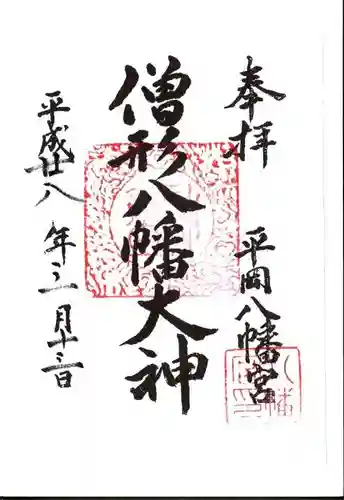 奉拝
平岡八幡宮
僧形八幡大神
平成廿八年三月十三日